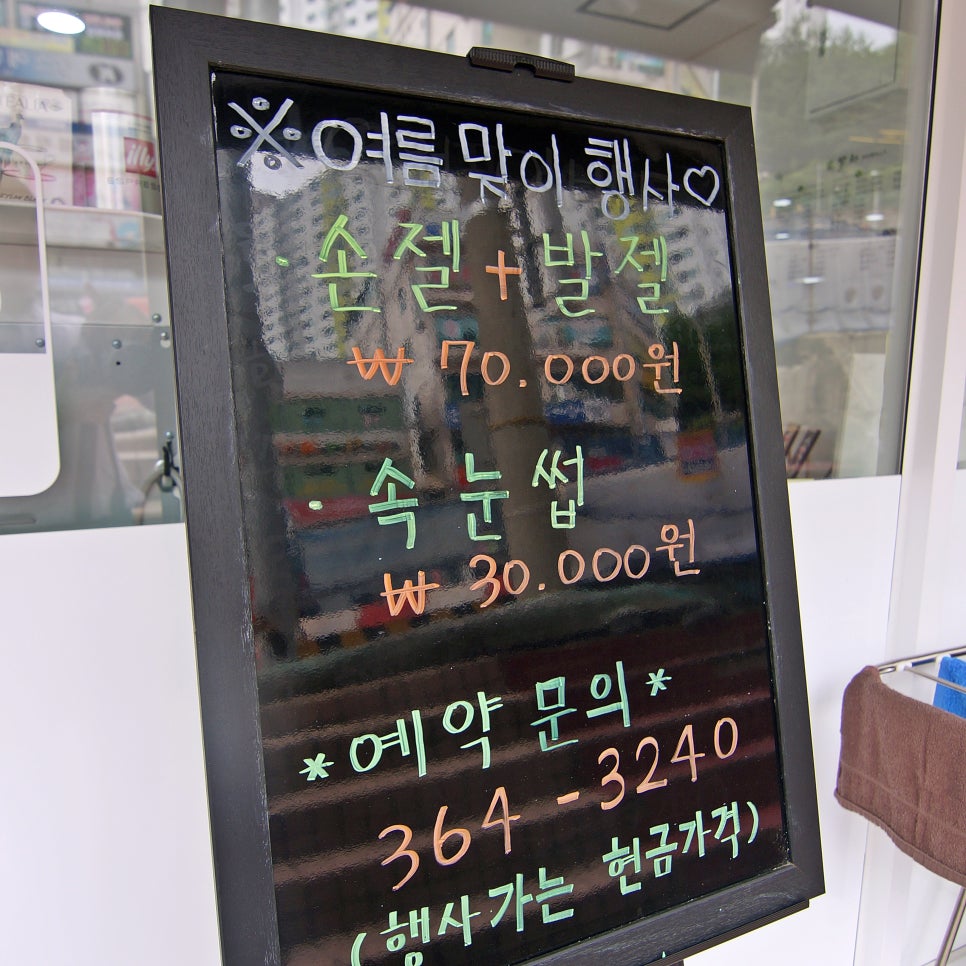 ※여름 맞이 행사♡
· 손젤 + 발젤
₩ 70.000원
· 속눈썹
₩ 30.000원
*예약 문의*
364-3240
(행사가는 현금가격)
illy